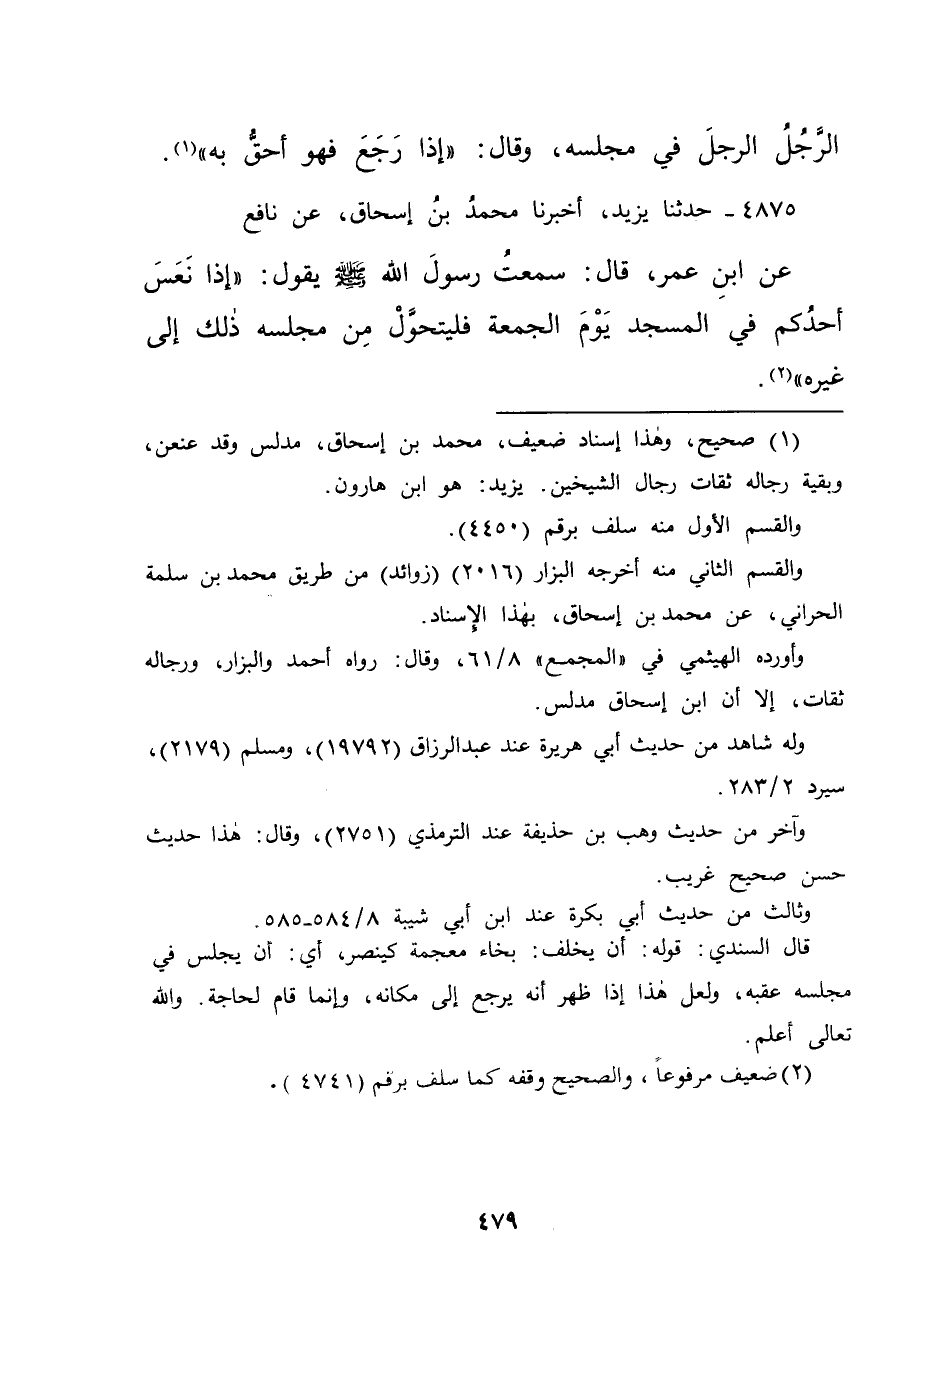 الرَّجُلُ الرجلَ في مجلسه، وقال: «إذا رَجَعَ فهو أحقُّ به»(١).
٤٨٧٥ - حدثنا يزيد، أخبرنا محمدُ بنُ إسحاق، عن نافع
عن ابنِ عمر، قال: سمعتُ رسولَ الله ﷺ يقول: «إذا نَعَسَ
أحدُكم في المسجد يَوْمَ الجمعة فليتحوَّلْ مِن مجلسه ذٰلك إلى
غيره»(٢).
(١) صحيح، وهٰذا إسناد ضعيف، محمد بن إسحاق، مدلس وقد عنعن،
وبقية رجاله ثقات رجال الشيخين. يزيد: هو ابن هارون.
والقسم الأول منه سلف برقم (٤٤٥٠).
والقسم الثاني منه أخرجه البزار (٢٠١٦) (زوائد) من طريق محمد بن سلمة
الحراني، عن محمد بن إسحاق، بهٰذا الإسناد.
وأورده الهيثمي في «المجمع» ٦١/٨، وقال: رواه أحمد والبزار، ورجاله
ثقات، إلا أن ابن إسحاق مدلس.
وله شاهد من حديث أبي هريرة عند عبدالرزاق (١٩٧٩٢)، ومسلم (٢١٧٩)،
سيرد ٢٨٣/٢.
وآخر من حديث وهب بن حذيفة عند الترمذي (٢٧٥١)، وقال: هٰذا حديث
حسن صحيح غريب.
وثالث من حديث أبي بكرة عند ابن أبي شيبة ٥٨٤/٨-٥٨٥.
قال السندي: قوله: أن يخلف: بخاء معجمة كينصر، أي: أن يجلس في
مجلسه عقبه، ولعل هٰذا إذا ظهر أنه يرجع إلى مكانه، وإنما قام لحاجة. والله
تعالى أعلم.
(٢) ضعيف مرفوعاً، والصحيح وقفه كما سلف برقم (٤٧٤١).
٤٧٩